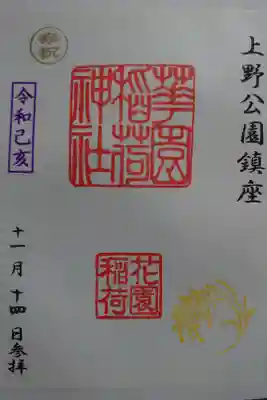 上野公園鎮座
華園
稲荷
神社
花園
稲荷
奉祝
令和己亥
十一月十四日参拝